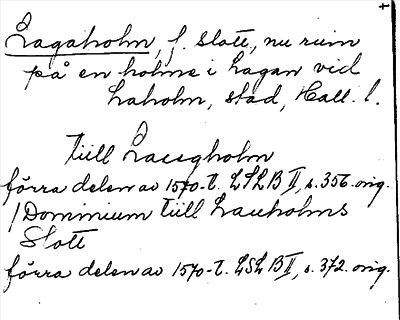 +
Lagaholm, f. slott, nu ruin
på en holme i Lagan vid
Laholm, stad, Hall. l.
till Laugholm
förra delen av 1570-t. LSLB II, s. 356. orig.
/Dominium till Lauholms
Slott
förra delen av 1570-t. LSLB II, s. 372. orig.